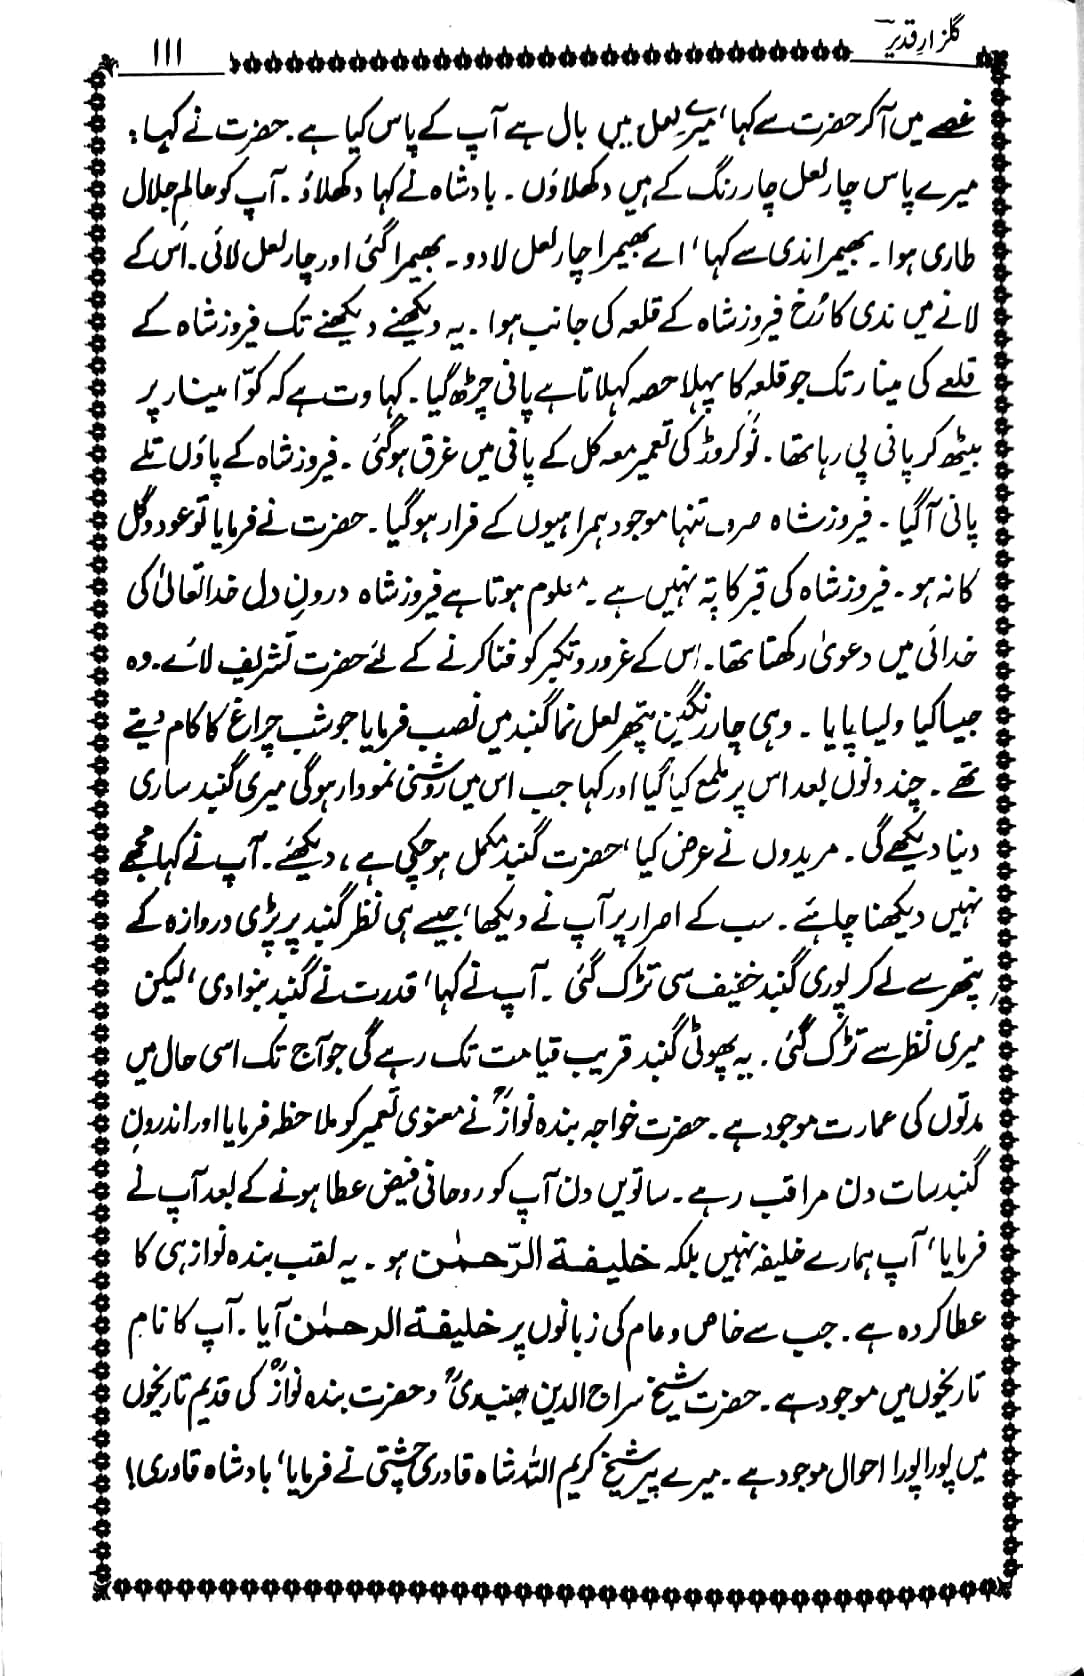 گلزارِ قدیرؒ
۱۱۱
غصے میں آکر حضرت سے کہا، میرے لعل میں بال ہے آپ کے پاس کیا ہے۔ حضرت نے کہا:
میرے پاس چار لعل چار رنگ کے ہیں دکھلاؤں۔ بادشاہ نے کہا دکھلاؤ۔ آپ کو عالم جلال
طاری ہوا۔ بھیمراندی سے کہا، اے بھیمرا چار لعل لادو۔ بھیمرا گئی اور چار لعل لائی۔ اُس کے
لانے میں ندی کا رُخ فیروز شاہ کے قلعہ کی جانب ہوا۔ یہ دیکھنے دیکھنے تک فیروز شاہ کے
قلعے کی مینار تک جو قلعہ کا پہلا حصہ کہلاتا ہے پانی چڑھ گیا۔ کہاوت ہے کہ کوّا مینار پر
بیٹھ کر پانی پی رہا تھا۔ نو کروڑ کی تعمیر معہ کل کے پانی میں غرق ہوگئی۔ فیروز شاہ کے پاؤں تلے
پانی آگیا۔ فیروز شاہ صرف تنہا موجود ہمراہیوں کے فرار ہوگیا۔ حضرت نے فرمایا تو عود و گل
کا نہ ہو۔ فیروز شاہ کی قبر کا پتہ نہیں ہے۔ معلوم ہوتا ہے فیروز شاہ درونِ دل خدا تعالیٰ کی
خدائی میں دعویٰ رکھتا تھا۔ اس کے غرور و تکبر کو فنا کرنے کے لئے حضرت تشریف لائے۔ وہ
جیسا کیا ویسا پایا۔ وہی چار رنگین پتھر لعل نما گنبد میں نصب فرمایا جو شب چراغ کا کام دیتے
تھے۔ چند دنوں بعد اس پر ملمع کیا گیا اور کہا جب اس میں روشنی نمودار ہوگی میری گنبد ساری
دنیا دیکھے گی۔ مریدوں نے عرض کیا، حضرت گنبد مکمل ہوچکی ہے، دیکھئے۔ آپ نے کہا مجھے
نہیں دیکھنا چاہئے۔ سب کے اصرار پر آپ نے دیکھا، جیسے ہی نظر گنبد پر پڑی دروازہ کے
پتھر سے لے کر پوری گنبد خفیف سی تڑک گئی۔ آپ نے کہا، قدرت نے گنبد بنوادی، لیکن
میری نظر سے تڑک گئی۔ یہ پھوٹی گنبد قریب قیامت تک رہے گی جو آج تک اسی حال میں
مدتوں کی عمارت موجود ہے۔ حضرت خواجہ بندہ نوازؒ نے معنوی تعمیر کو ملاحظہ فرمایا اور اندرونِ
گنبد سات دن مراقب رہے۔ ساتویں دن آپ کو روحانی فیض عطا ہونے کے بعد آپ نے
فرمایا، آپ ہمارے خلیفہ نہیں بلکہ خلیفۃ الرّحمٰن ہو۔ یہ لقب بندہ نواز ہی کا
عطا کردہ ہے۔ جب سے خاص و عام کی زبانوں پر خلیفۃ الرحمٰن آیا۔ آپ کا نام
تاریخوں میں موجود ہے۔ حضرت شیخ سراج الدین جنیدیؒ و حضرت بندہ نوازؒ کی قدیم تاریخوں
میں پورا پورا احوال موجود ہے۔ میرے پیر شیخ کریم اللہ شاہ قادری چشتی نے فرمایا، بادشاہ قادری!